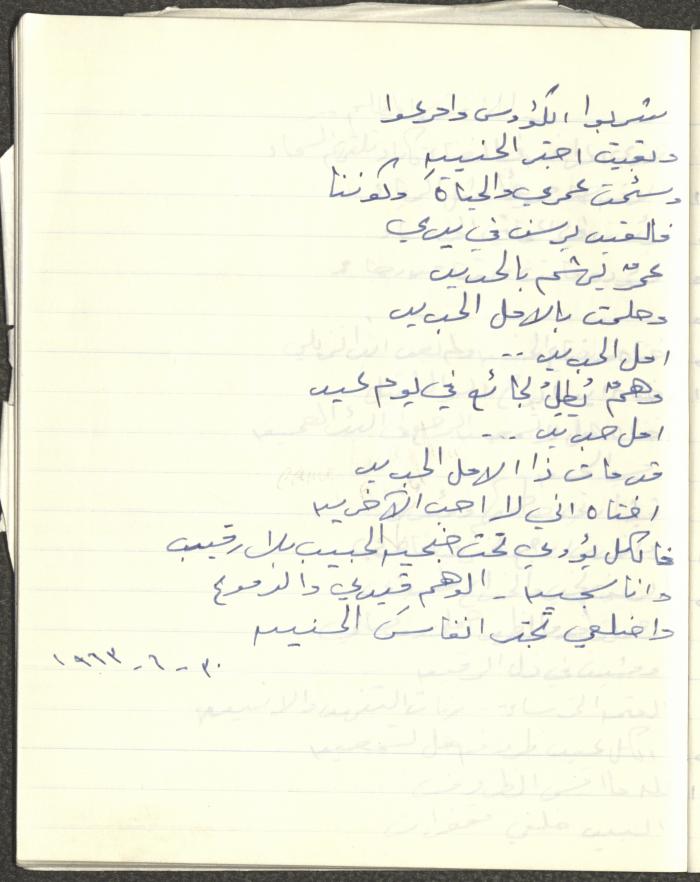 شربوا الكؤوس واحرعوا
وبقيت اجتر الحنين
وسئمت عمري والحياة وكوننا
فالقيد يرسف في يدي
عمرٌ يهشم بالحديد
وحلمت بالامل الجديد
امل الجديد ..
وهمٌ يُطلُ لجائع في يوم عيد
امل جديد ...
قد مات ذا الامل الجديد
اختاه اني لا احب الآخرين
فالكل يؤدي تحت الحبيب بلا رقيب
وانا سجين - الوهم قيدي والدموع
واضلعي تجتر انفاسَ الحنين
٣٠-٦-١٩٦٣